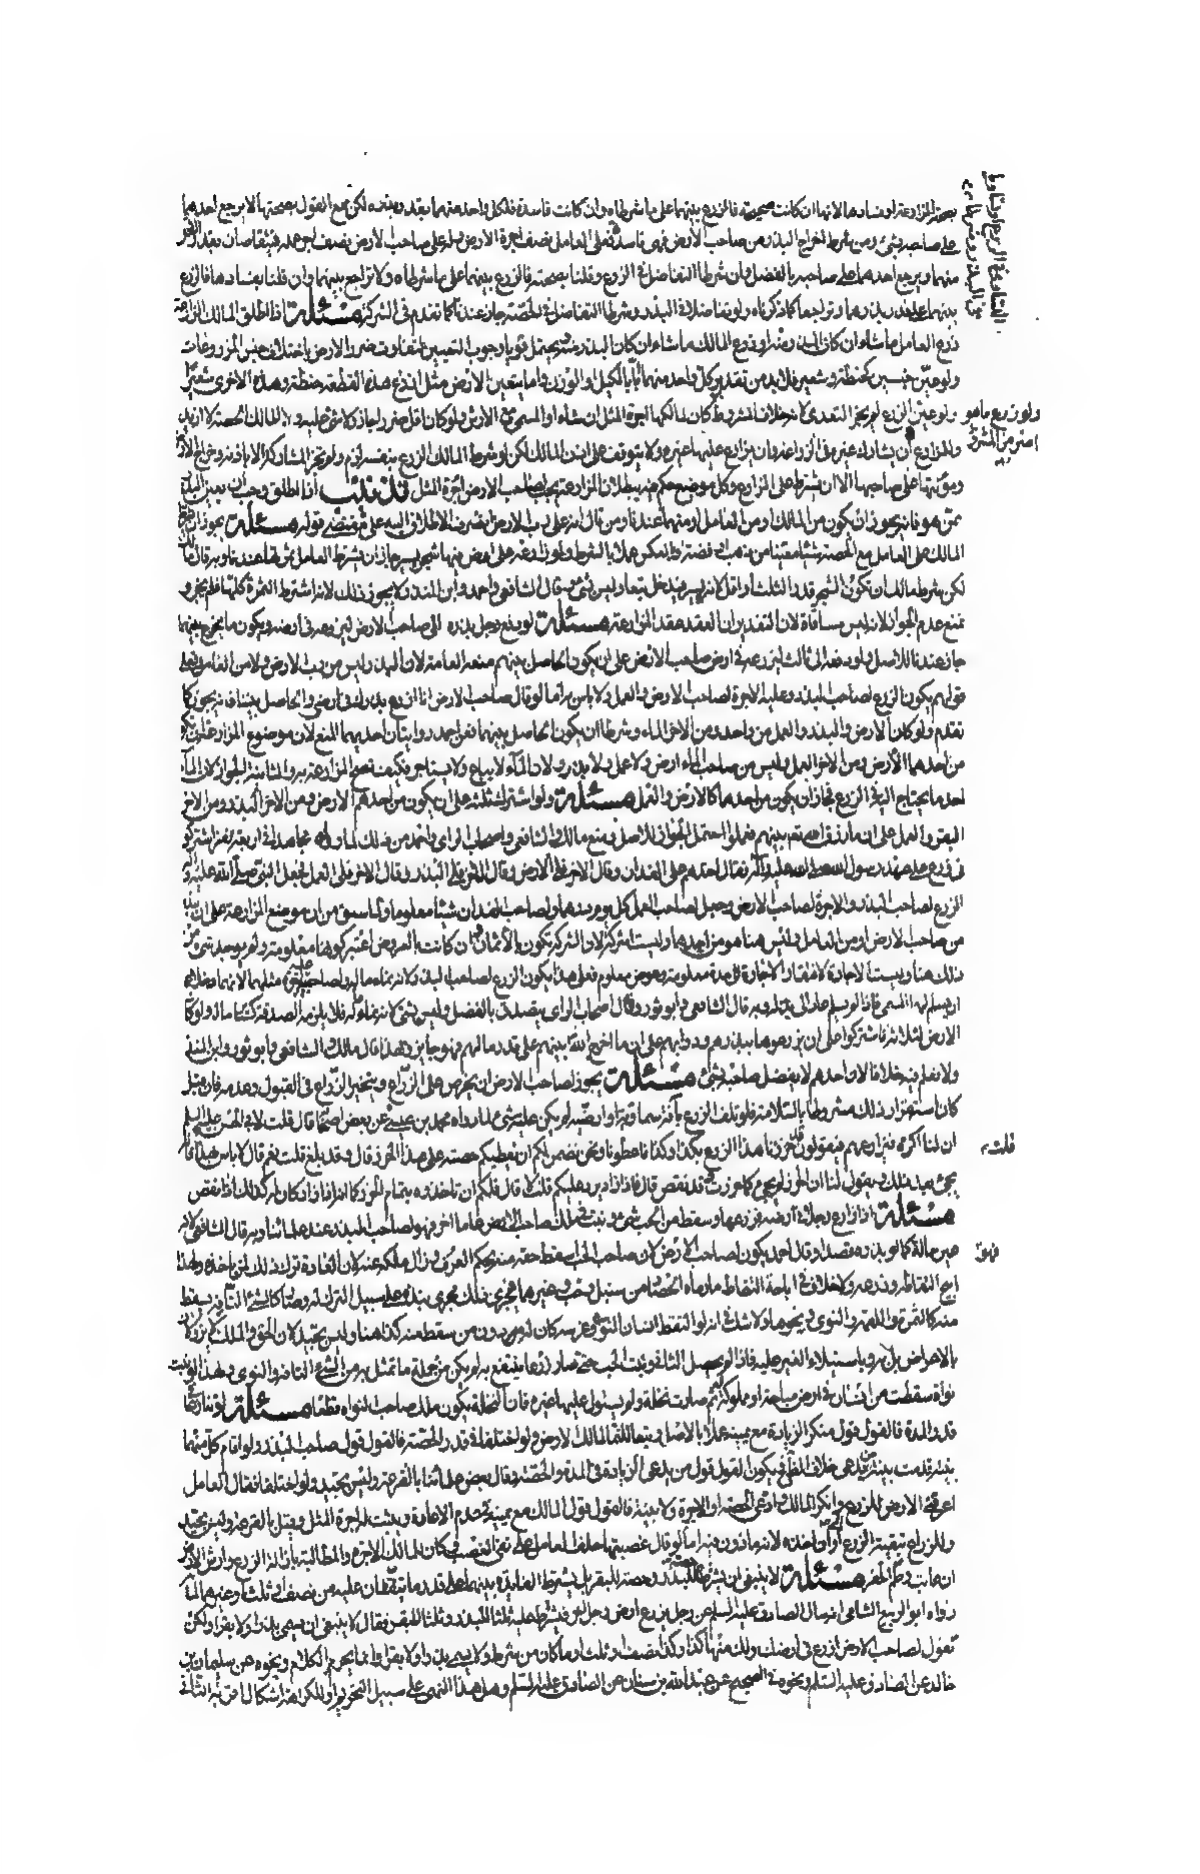 بصحة المزارعة او فسادها لانها ان كانت صحيحة فالزرع بينهما على ما شرطاه وان كانت فاسدة فلكل واحد منهما بقدر بذره لكن مع القول بصحتها لا يرجع احدهما
على صاحبه بشئ ومن شرط اخراج البذر من صاحب الارض فهي فاسدة فعلى العامل نصف اجرة الارض وله على صاحب الارض نصف اجر عمله فيتقاصان بقدر الاقل
منهما ويرجع احدهما على صاحبه بالفضل وان شرطا التفاضل في الزرع وقلنا بصحته فالزرع بينهما على ما شرطاه ولا تراجع بينهما وان قلنا بفسادها فالزرع
بينهما على قدر بذرهما وتراجعا كما ذكرناه ولو تفاضلا في البذر وشرطا التفاضل في الحصة جاز عندنا كما تقدم في الشركة مسئلة اذا اطلق المالك المزارعة
زرع العامل ما شاء ان كان البذر منه او زرع المالك ما شاء ان كان البذر منه ويحتمل قويا وجوب التعيين لتفاوت ضرر الارض باختلاف جنس المزروعات
ولو عين جنسين كحنطة وشعير فلا بد من تقدير كل واحد منهما اما بالكيل او الوزن واما بتعين الارض مثل ازرع هذه القطعة حنطة وهذه الاخرى شعيرا
ولو عين الزرع لم يجز التعدي لانه خلاف المشروط كان لمالكها اجرة المثل ان شاء او المسمى مع الارش ولو كان اقل ضررا جاز
وللمزارع ان يشارك غيره في الزراعة وان يزارع عليها غيره ولا يتوقف على اذن المالك لكن لو شرط المالك الزرع بنفسه لزم ولم تجز المشاركة الا باذنه وخراج الارض
ومؤنتها على صاحبها الا ان يشترط على المزارع وكل موضع يحكم فيه ببطلان المزارعة يجب لصاحب الارض اجرة المثل تذنيب اذا اطلق وجب ان يعين البذر
ممن هو فانه يجوز ان يكون من المالك او من العامل او منهما عندنا ومن قال انه على رب الارض انصرف الاطلاق اليه على مقتضى قوله مسئلة يجوز ان يشترط
المالك على العامل مع الحصة شيئا معينا من ذهب او فضة وبالعكس عملا بالشرط ولو زارعه على ارض فيها شجر يسير جاز ان يشترط العامل ثمرتها عندنا وبه قال مالك
لكن بشرط مالك ان تكون الشجر قدر الثلث او اقل لانه يسير فيدخل تبعا وليس بشئ وقال الشافعي واحمد وابن المنذر لا يجوز ذلك لانه اشترط الثمرة كلها فلم يجز و
نمنع عدم الجواز لانه ليس مساقاة لان التقدير ان العقد عقد المزارعة مسئلة لو دفع رجل بذره الى صاحب الارض ليزرعه في ارضه ويكون ما يخرج بينهما
جاز عندنا للاصل ولو دفعه الى ثالث ليزرعه في ارض صاحب الارض على ان يكون الحاصل بينهم منعه العامة لان البذر ليس من رب الارض ولا من العامل وعلى
قولهم يكون الزرع لصاحب البذر وعليه الاجرة لصاحب الارض والعمل ولا باس به اما لو قال صاحب الارض انا ازرع بذرك في ارضي والحاصل بيننا فانه يجوز كما
تقدم ولو كان الارض والبذر والعمل من واحد ومن الاخر الماء وشرطا ان يكون الحاصل بينهما فعن احمد روايتان احديهما المنع لان موضوع المزارعة ان تكون
من احدهما الارض ومن الاخر العمل وليس من صاحب الماء ارض ولا عمل ولا بذر ولان الماء لا يباع ولا يستاجر فكيف تصح المزارعة به والثانية الجواز لان الماء
احد ما يحتاج اليه في الزرع فجاز ان يكون من احدهما كالارض والعمل مسئلة ولو اشترك ثلثة على ان يكون من احدهم الارض ومن الاخر البذر ومن الاخر
البقر والعمل على ان ما رزق الله بينهم فعملوا احتمل الجواز للاصل ومنع مالك والشافعي واصحاب الراي واحمد من ذلك لما رواه مجاهد في اربعة نفر اشتركوا
في زرع على عهد رسول الله صلى الله عليه وآله فقال احدهم على الفدان وقال الاخر قبلي الارض وقال الاخر قبلي البذر وقال الاخر قبلي العمل فجعل النبي صلى الله عليه وآله
الزرع لصاحب البذر والاجرة لصاحب الارض وجعل لصاحب العمل كل يوم درهما ولصاحب الفدان شيئا معلوما ولما سبق من ان موضوع المزارعة على ان البذر
من صاحب الارض او من العامل وليس هنا هو من احدهما وليست شركة لان الشركة تكون بالاثمان وان كانت بالعروض اعتبر كونها معلومة ولم يوجد شئ من
ذلك هنا وليست الاجارة لافتقار الاجارة الى مدة معلومة وعوض معلوم فعلى هذا يكون الزرع لصاحب البذر لانه نماء ماله ولصاحبيه عليه اجرة مثلهما لانهما دخلا على
ان يسلم لهما المسمى فاذا لم يسلم عاد الى بدله وبه قال الشافعي وابو ثور وقال اصحاب الراي يتصدق بالفضل وليس بشئ لانه نماء ماله فلا يلزمه الصدقة كسائر ماله ولو كان
الارض لثلاثة فاشتركوا على ان يزرعوها ببذرهم ودوابهم على ان ما اخرج الله بينهم على قدر مالهم فهو جائز وبهذا قال مالك والشافعي وابو ثور وابن المنذر
ولا نعلم فيه خلافا لان احدهم لا يفضل صاحبه بشئ مسئلة يجوز لصاحب الارض ان يخرص على الزراع ويتخير الزراع في القبول وعدمه فان قبل
كان استقراره ذلك مشروطا بالسلامة فلو تلف الزرع بآفة سماوية او ارضية لم يكن عليه شئ لما رواه محمد بن عيسى عن بعض اصحابنا قال قلت لابي الحسن عليه السلام
ان لنا اكرة فنزارعهم فيقولون قد حزرنا هذا الزرع بكذا وكذا فاعطوناه ونحن نضمن لكم ان نعطيكم حصته على هذا الحزر قال وقد بلغ قلت نعم قال لا باس بهذا قلت فانه
يجئ بعد ذلك ويقول لنا ان الحزر لم يجئ كما حزرت قد نقص قال فاذا زاد يرد عليكم قلت لا قال فلكم ان تاخذوه بتمام الحزر كما انه اذا زاد كان له كذلك اذا نقص
مسئلة اذا زارع رجلا في ارضه فزرعها وسقط من الحب شئ ونبت في ملك صاحب الارض عاما اخر فهو لصاحب البذر عند علمائنا وبه قال الشافعي لانه
عين ماله كما لو بذره قصدا وقال احمد يكون لصاحب الارض لان صاحب الحب اسقط حقه منه بحكم العرف وزال ملكه عنه لان العادة ترك ذلك لمن ياخذه ولهذا
ابيح التقاطه ورعيه ولا خلاف في اباحة التقاط ما رماه الحصادون من سنبل وحب وغيرهما فجرى ذلك مجرى نبذه على سبيل الترك له وصار كالشئ التافه يسقط
منه كالتمرة واللقمة والنوى ونحوها ولا شك في انه لو التقط انسان النوى وغرسه كان له دون من سقط عنه كذا هنا وليس بجيد لان الحق في الملك لا يزول الا
بالاعراض بل به وباستيلاء الغير عليه فاذا لم يحصل الثاني ونبت الحب حتى صار زرعا ينتفع به لم يكن من جملة ما تمثل به من الشئ التافه والنوى ولهذا لو نبت
نواة سقطت من انسان في ارض مباحة او مملوكة ثم صارت نخلة ولم يستول عليها غيره فان النخلة تكون ملك صاحب النواة قطعا مسئلة لو تنازعا في
قدر المدة فالقول قول منكر الزيادة مع يمينه عملا بالاصل وتبعا للمالك الارض ولو اختلفا في قدر الحصة فالقول قول صاحب البذر ولو اقام كل منهما
بينة قدمت بينة من يدعي خلاف الظاهر فيكون القول قول من يدعي الزيادة في المدة والحصة وقال بعض علمائنا بالقرعة وليس بجيد ولو اختلفا فقال العامل
اعرتني الارض للزرع وانكر المالك وادعى الحصة او الاجرة ولا بينة فالقول قول المالك مع يمينه في عدم الاعارة ويثبت له اجرة المثل وقيل بالقرعة وليس بجيد
وللزراع تبقية الزرع الى اوان اخذه لانه ماذون فيه اما لو قال غصبتنيها حلف العامل على نفي الغصب وكان للمالك الاجرة والمطالبة بازالة الزرع وارش الارض
ان عابت وطم الحفر مسئلة لا ينبغي ان يشرط حصة للبذر وحصة للبقر بل يشرط الفايدة بينهما على قدر ما يتفقان عليه من نصف او ثلث او غيرهما لما
رواه ابو الربيع الشامي انه سال الصادق عليه السلام عن رجل يزرع ارض رجل اخر فيشرط عليه ثلثا للبذر وثلثا للبقر فقال لا ينبغي ان يسمي بذرا ولا بقرا ولكن
يقول لصاحب الارض ازرع في ارضك ولك منها كذا وكذا نصف او ثلث او ما كان من شرط ولا يسمي بذرا ولا بقرا فانما يحرم الكلام ونحوه عن سليمان بن
خالد عن الصادق عليه السلام ونحوه في الصحيح عن عبد الله بن سنان عن الصادق عليه السلام وهل هذا النهي على سبيل التحريم او الكراهة اشكال اقربه الثاني
ولو زرع ما هو
اضر من المشترط
قلت
فهو